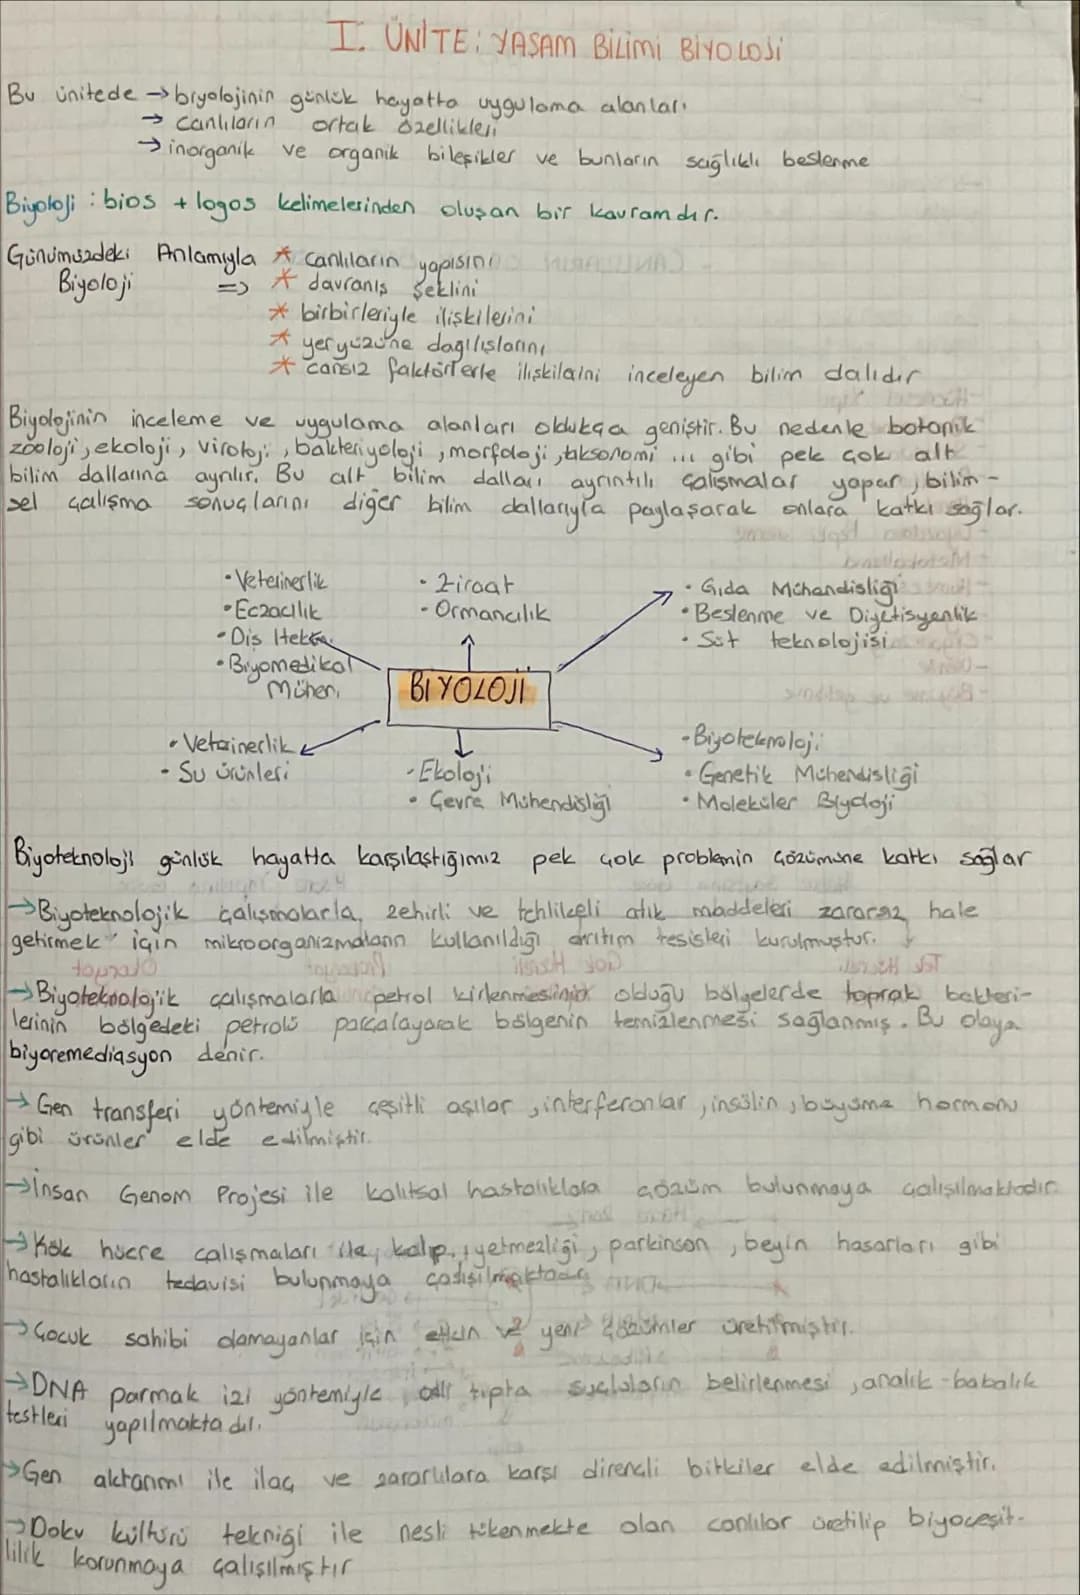 I. ÜNİTE: YAŞAM BİLİMİ BİYOLOJİ
Bu ünitede → biyolojinin günlük hayatta uygulama alanları
→ canlıların ortak özellikleri
→ inorganik ve organik bileşikler ve bunların sağlıklı beslenme
Biyoloji : bios + logos kelimelerinden oluşan bir kavramdır.
Günümüzdeki Anlamıyla * canlıların yapısını
Biyoloji => * davranış şeklini
* birbirleriyle ilişkilerini
* yeryüzüne dağılışlarını
* cansız faktörlerle ilişkilerini inceleyen bilim dalıdır
Biyolojinin inceleme ve uygulama alanları oldukça geniştir. Bu nedenle botanik
zooloji, ekoloji, viroloji, bakteriyoloji, morfoloji, taksonomi ... gibi pek çok alt
bilim dallarına ayrılır. Bu alt bilim dalları ayrıntılı çalışmalar yapar, bilim-
sel çalışma sonuçlarını diğer bilim dallarıyla paylaşarak onlara katkı sağlar.
• Veterinerlik
• Eczacılık
• Diş Hek
• Biyomedikal
Mühen.
• Ziraat
• Ormancılık
• Gıda Mühendisliği
• Beslenme ve Diyetisyenlik
• Süt teknolojisi
BİYOLOJİ
• Veterinerlik
• Su ürünleri
• Ekoloji
• Çevre Mühendisliği
• Biyoteknoloji
• Genetik Mühendisliği
• Moleküler Biyoloji
Biyoteknoloji günlük hayatta karşılaştığımız pek çok problemin çözümüne katkı sağlar
→ Biyoteknolojik çalışmalarla, zehirli ve tehlikeli atık maddeleri zararsız hale
getirmek için mikroorganizmaların kullanıldığı arıtım tesisleri kurulmuştur.
→ Biyoteknolojik çalışmalarla petrol kirlenmesinin olduğu bölgelerde toprak bakteri-
lerinin bölgedeki petrolü parçalayarak bölgenin temizlenmesi sağlanmış. Bu olaya
biyoremediasyon denir.
→ Gen transferi yöntemiyle çeşitli aşılar, interferonlar, insülin, büyüme hormonu
gibi ürünler elde edilmiştir.
→ İnsan Genom Projesi ile kalıtsal hastalıklara çözüm bulunmaya çalışılmaktadır.
→ Kök hücre çalışmaları ile, kalp yetmezliği, parkinson, beyin hasarları gibi
hastalıkların tedavisi bulunmaya çalışılmaktadır
→ Çocuk sahibi olamayanlar için etkin ve yeni çözümler üretilmiştir.
→ DNA parmak izi yöntemiyle adli tıpta suçluların belirlenmesi, analık-babalık
testleri yapılmaktadır.
→ Gen aktarımı ile ilaç ve zararlılara karşı dirençli bitkiler elde edilmiştir.
→ Doku kültürü tekniği ile nesli tükenmekte olan canlılar üretilip biyoçeşit-
lilik korunmaya çalışılmıştır